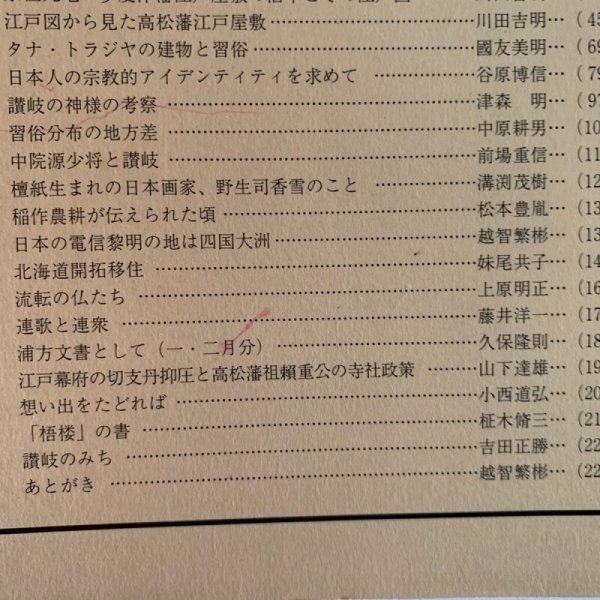 江戸図から見た高松藩江戸屋敷……………………川田吉明…（45
タナ・トラジヤの建物と習俗……………………國友美明…（69
日本人の宗教的アイデンティティを求めて …………谷原博信…（79
讃岐の神様の考察……………………………津森 明…（97
習俗分布の地方差……………………………中原耕男…（10
中院源少将と讃岐……………………………前場重信…（11
檀紙生まれの日本画家、野生司香雪のこと …………溝渕茂樹…（12
稲作農耕が伝えられた頃…………………………松本豊胤…（13
日本の電信黎明の地は四国大洲……………………越智繁彬…（13
北海道開拓移住 ……………………………妹尾共子…（14
流転の仏たち ………………………………上原明正…（16
連歌と連衆 …………………………………藤井洋一…（17
浦方文書として（一・二月分）……………………久保隆則…（18
江戸幕府の切支丹抑圧と高松藩祖頼重公の寺社政策 ……山下達雄…（19
想い出をたどれば……………………………小西道弘…（20
「梧楼」の書 ………………………………柾木脩三…（21
讃岐のみち …………………………………吉田正勝…（22
あとがき ……………………………………越智繁彬…（22